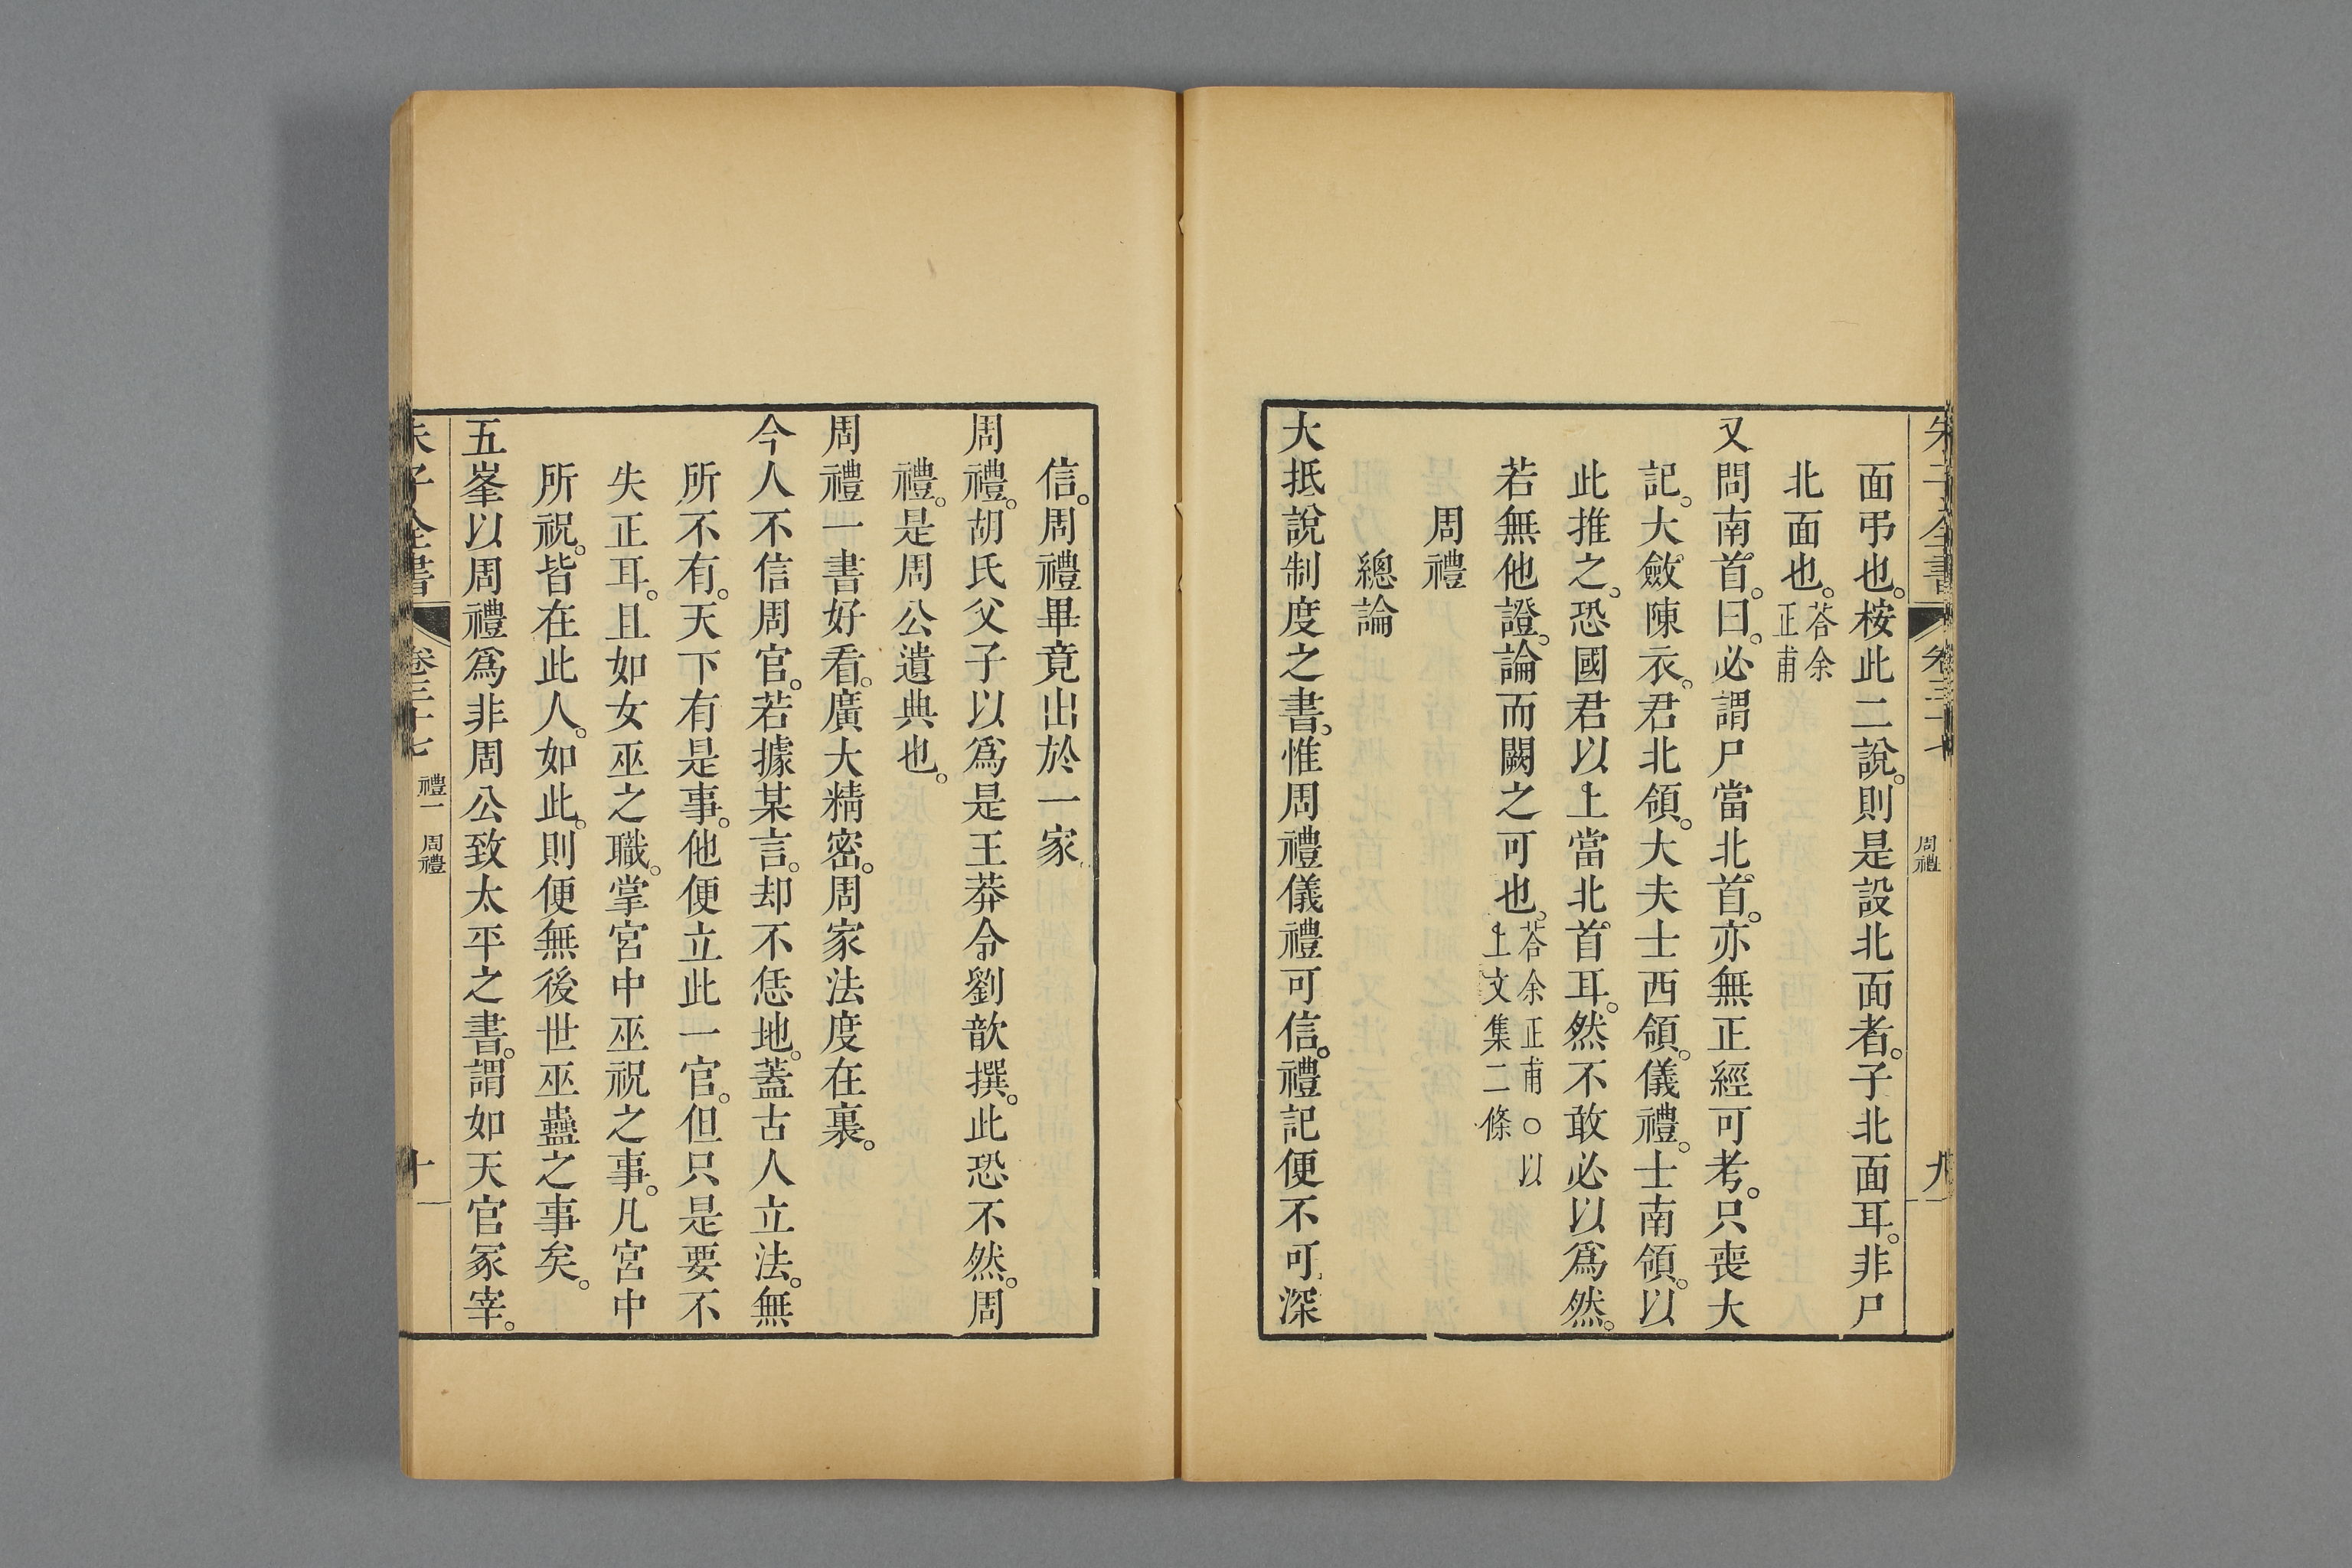 朱子全書 卷三十七 周禮 九
面弔也。桉此二說。則是設北面者。子北面耳。非尸
北面也。荅余正甫
又問南首。曰。必謂尸當北首。亦無正經可考。只喪大
記。大斂陳衣。君北領。大夫士西領。儀禮。士南領。以
此推之。恐國君以上當北首耳。然不敢必以爲然。
若無他證。論而闕之可也。荅余正甫○以上文集二條
周禮
總論
大抵說制度之書。惟周禮儀禮可信。禮記便不可深
信。周禮畢竟出於一家
周禮。胡氏父子以爲是王莽令劉歆撰。此恐不然。周
禮。是周公遺典也。
周禮一書好看。廣大精密。周家法度在裏。
今人不信周官。若據某言。却不恁地。蓋古人立法。無
所不有。天下有是事。他便立此一官。但只是要不
失正耳。且如女巫之職。掌宮中巫祝之事。凡宮中
所祝。皆在此人。如此。則便無後世巫蠱之事矣。
五峯以周禮爲非周公致太平之書。謂如天官冢宰。
朱子全書 卷三十七 禮一 周禮 十